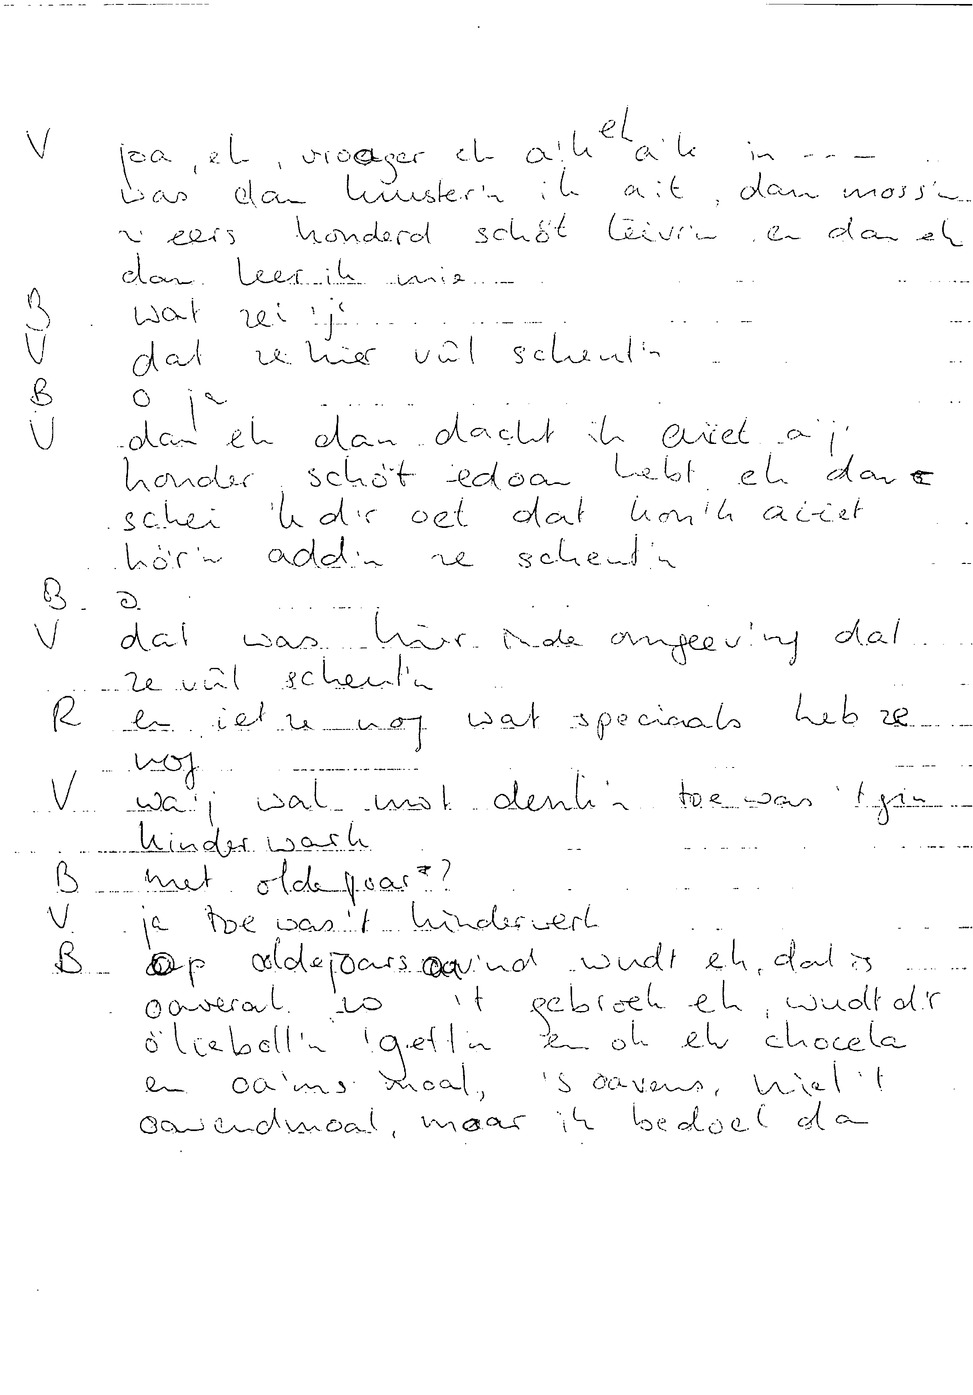 V joa, eh, vrooger eh a'k eh a'k in ---
was dan luuster'n ik ait, dan moss'n
z' eers honderd schöt leiv'n en dan eh
dan leer ik mie
B wat zei 'j
V dat ze hier vûl scheut'n
B o ja
V dan eh dan dacht ik aiet a'j
honder schöt edoan hebt eh dan
schei 'k d'r oet dat kon 'k aiet
hör'n add'n ze scheut'n
B o
V dat was hier in de omgeev'ng dat
ze vûl scheut'n
R en iet ze nog wat speciaals heb ze
nog
V wa'j wal mot denk'n toe was 't gin
kinderwark
B met oldejoar?
V ja toe was 't kinderwerk
B Op oldejoarsoavind wudt eh, dat is
oaveral zo 't gebroek eh, wudt d'r
ölieboll'n 'gett'n en ok eh chocela
en oa'ms moal, 's oavens, niet 't
oavendmoal, maar ik bedoel da